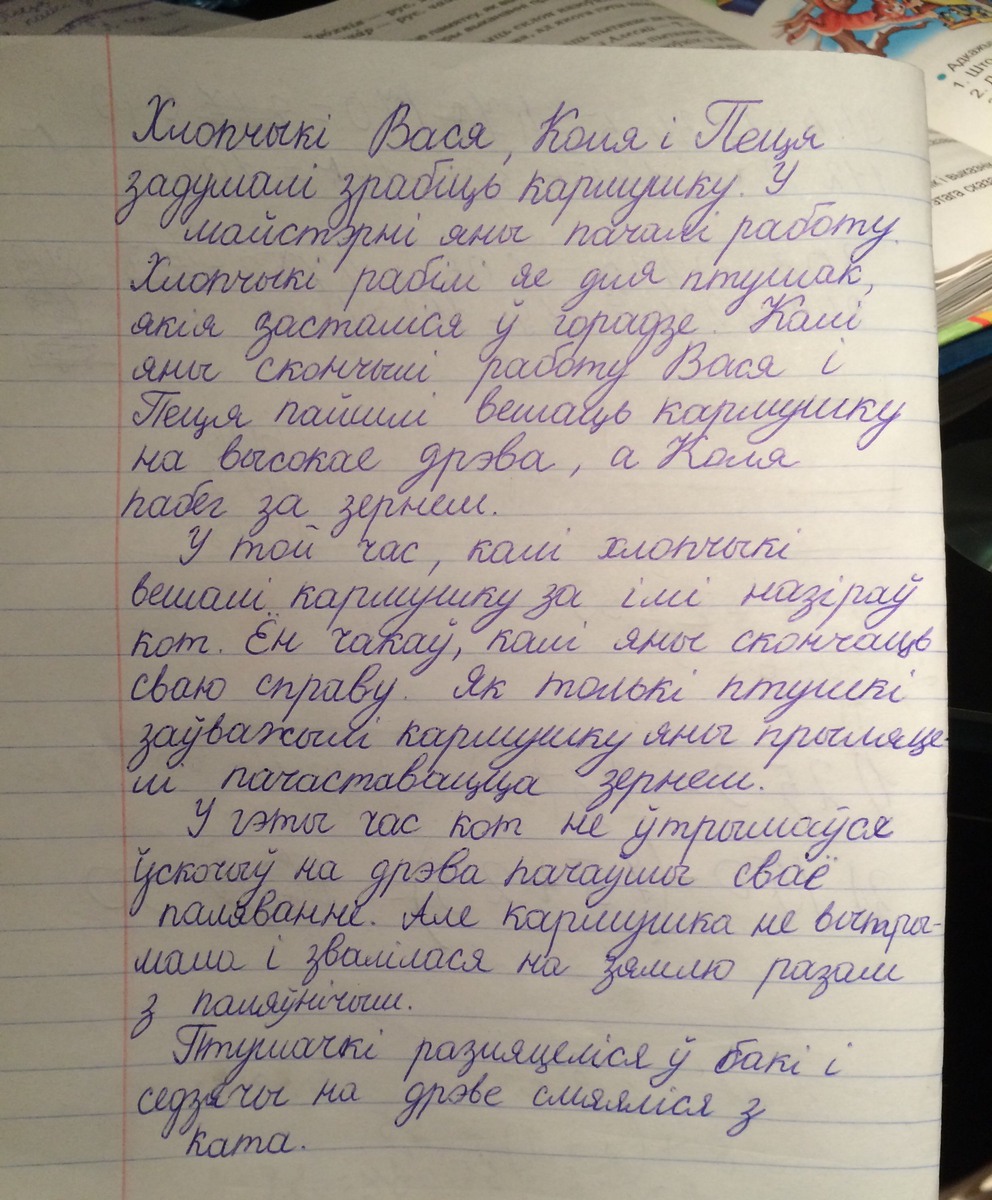 Хлопчыкі Вася, Коля і Пеця
задумалі зрабіць кармушку. У
майстэрні яны пачалі работу.
Хлопчыкі рабілі яе для птушак,
якія засталіся ў горадзе. Калі
яны скончылі работу Вася і
Пеця пайшлі вешаць кармушку
на высокае дрэва, а Коля
пабег за зернем.
У той час, калі хлопчыкі
вешалі кармушку за імі назіраў
кот. Ён чакаў, калі яны скончаць
сваю справу. Як толькі птушкі
заўважылі кармушку яны прыляце-
лі пачаставацца зернем.
У гэты час кот не ўтрымаўся
ўскочыў на дрэва пачаўшы сваё
паляванне. Але кармушка не вытры-
мала і звалілася на зямлю разам
з паляўнічым.
Птушачкі разляцеліся ў бакі і
седзячы на дрэве смяяліся з
ката.
Адкажы
1. Што
2.